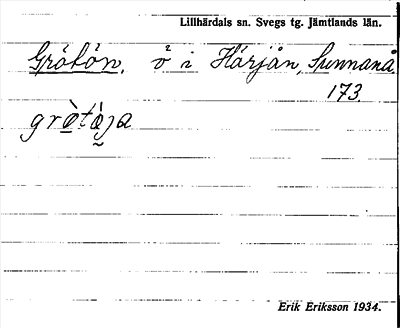 Lillhärdals sn. Svegs tg. Jämtlands län.
Gråtön, ö i Härjån, Sunnanå
173.
Erik Eriksson 1934.